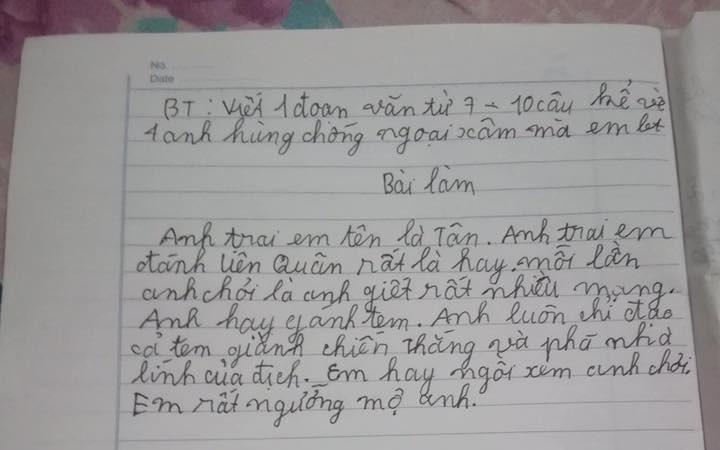 No.
Date
BT: Viết 1 đoạn văn từ 7 - 10 câu kể về
1 anh hùng chống ngoại xâm mà em biết
Bài làm
Anh trai em tên là Tân. Anh trai em
đánh liên quân rất là hay. mỗi lần
anh chơi là anh giết rất nhiều mạng.
Anh hay gánh tem. Anh luôn chỉ đạo
cả tem giành chiến thắng và phá nhà
lính của địch. Em hay ngồi xem anh chơi.
Em rất ngưỡng mộ anh.